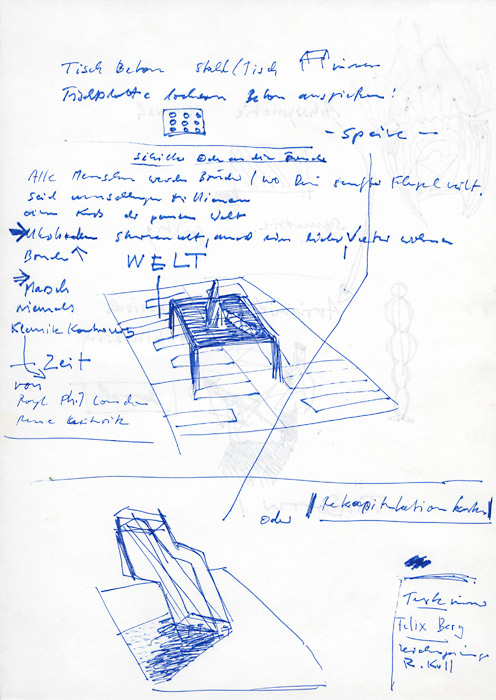 Tisch Beton Stahl/Tisch innen
Tischplatte lochern Beton ausgießen!
- Speise -
Schiller Ode an die Freude
Alle Menschen werden Brüder / wo Dein sanfter Flügel weilt.
seid umschlungen Millionen
einen Kuß der ganzen Welt
Sternenzelt, muß ein lieber Vater wohnen
Brüder
WELT
Marsch
niemals
Klassik
Zeit
von
Royl Phil London
oder
Rekapitulation
Text
Felix Berg
R. Kull